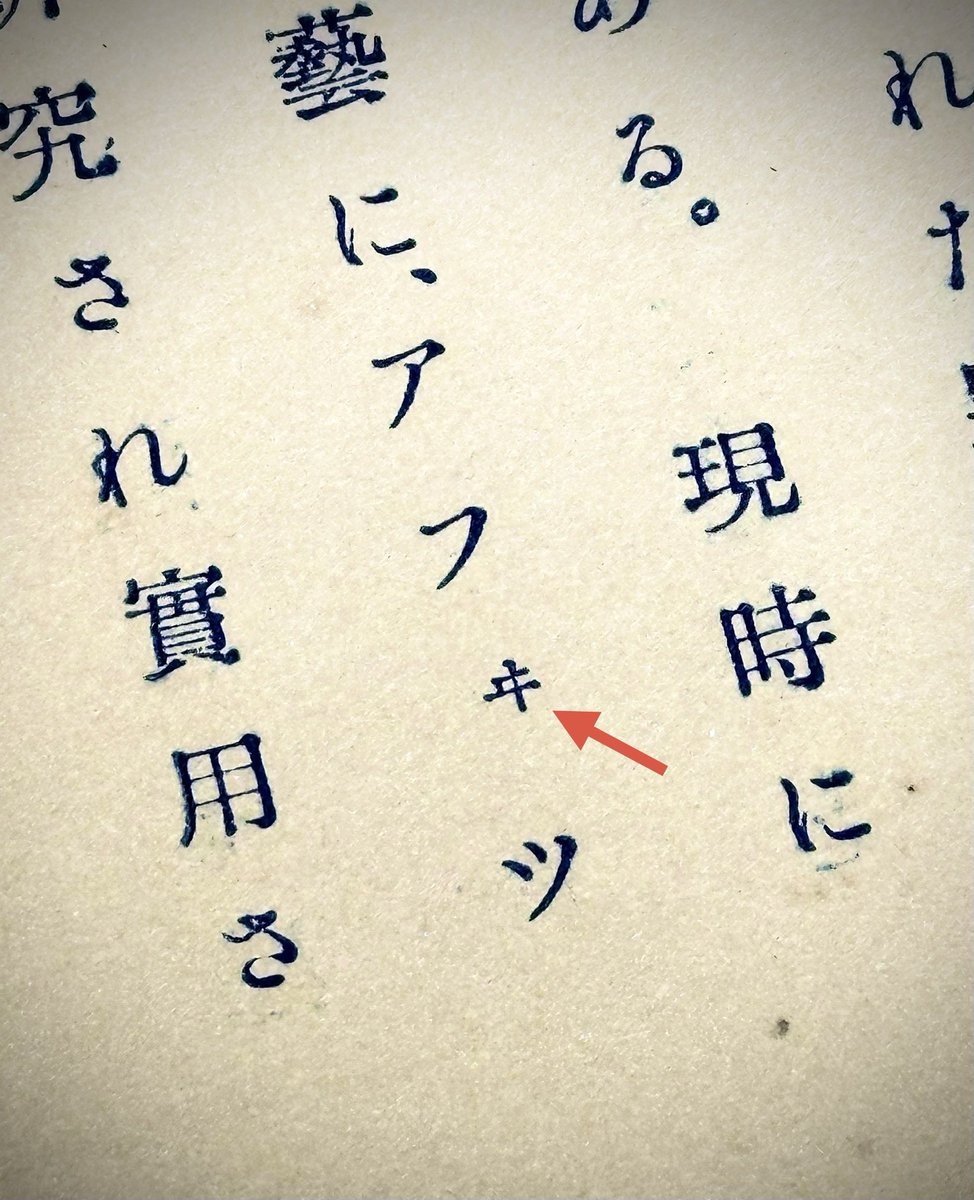 れた
ある。現時に
藝に、アフヰツ
究され實用さ